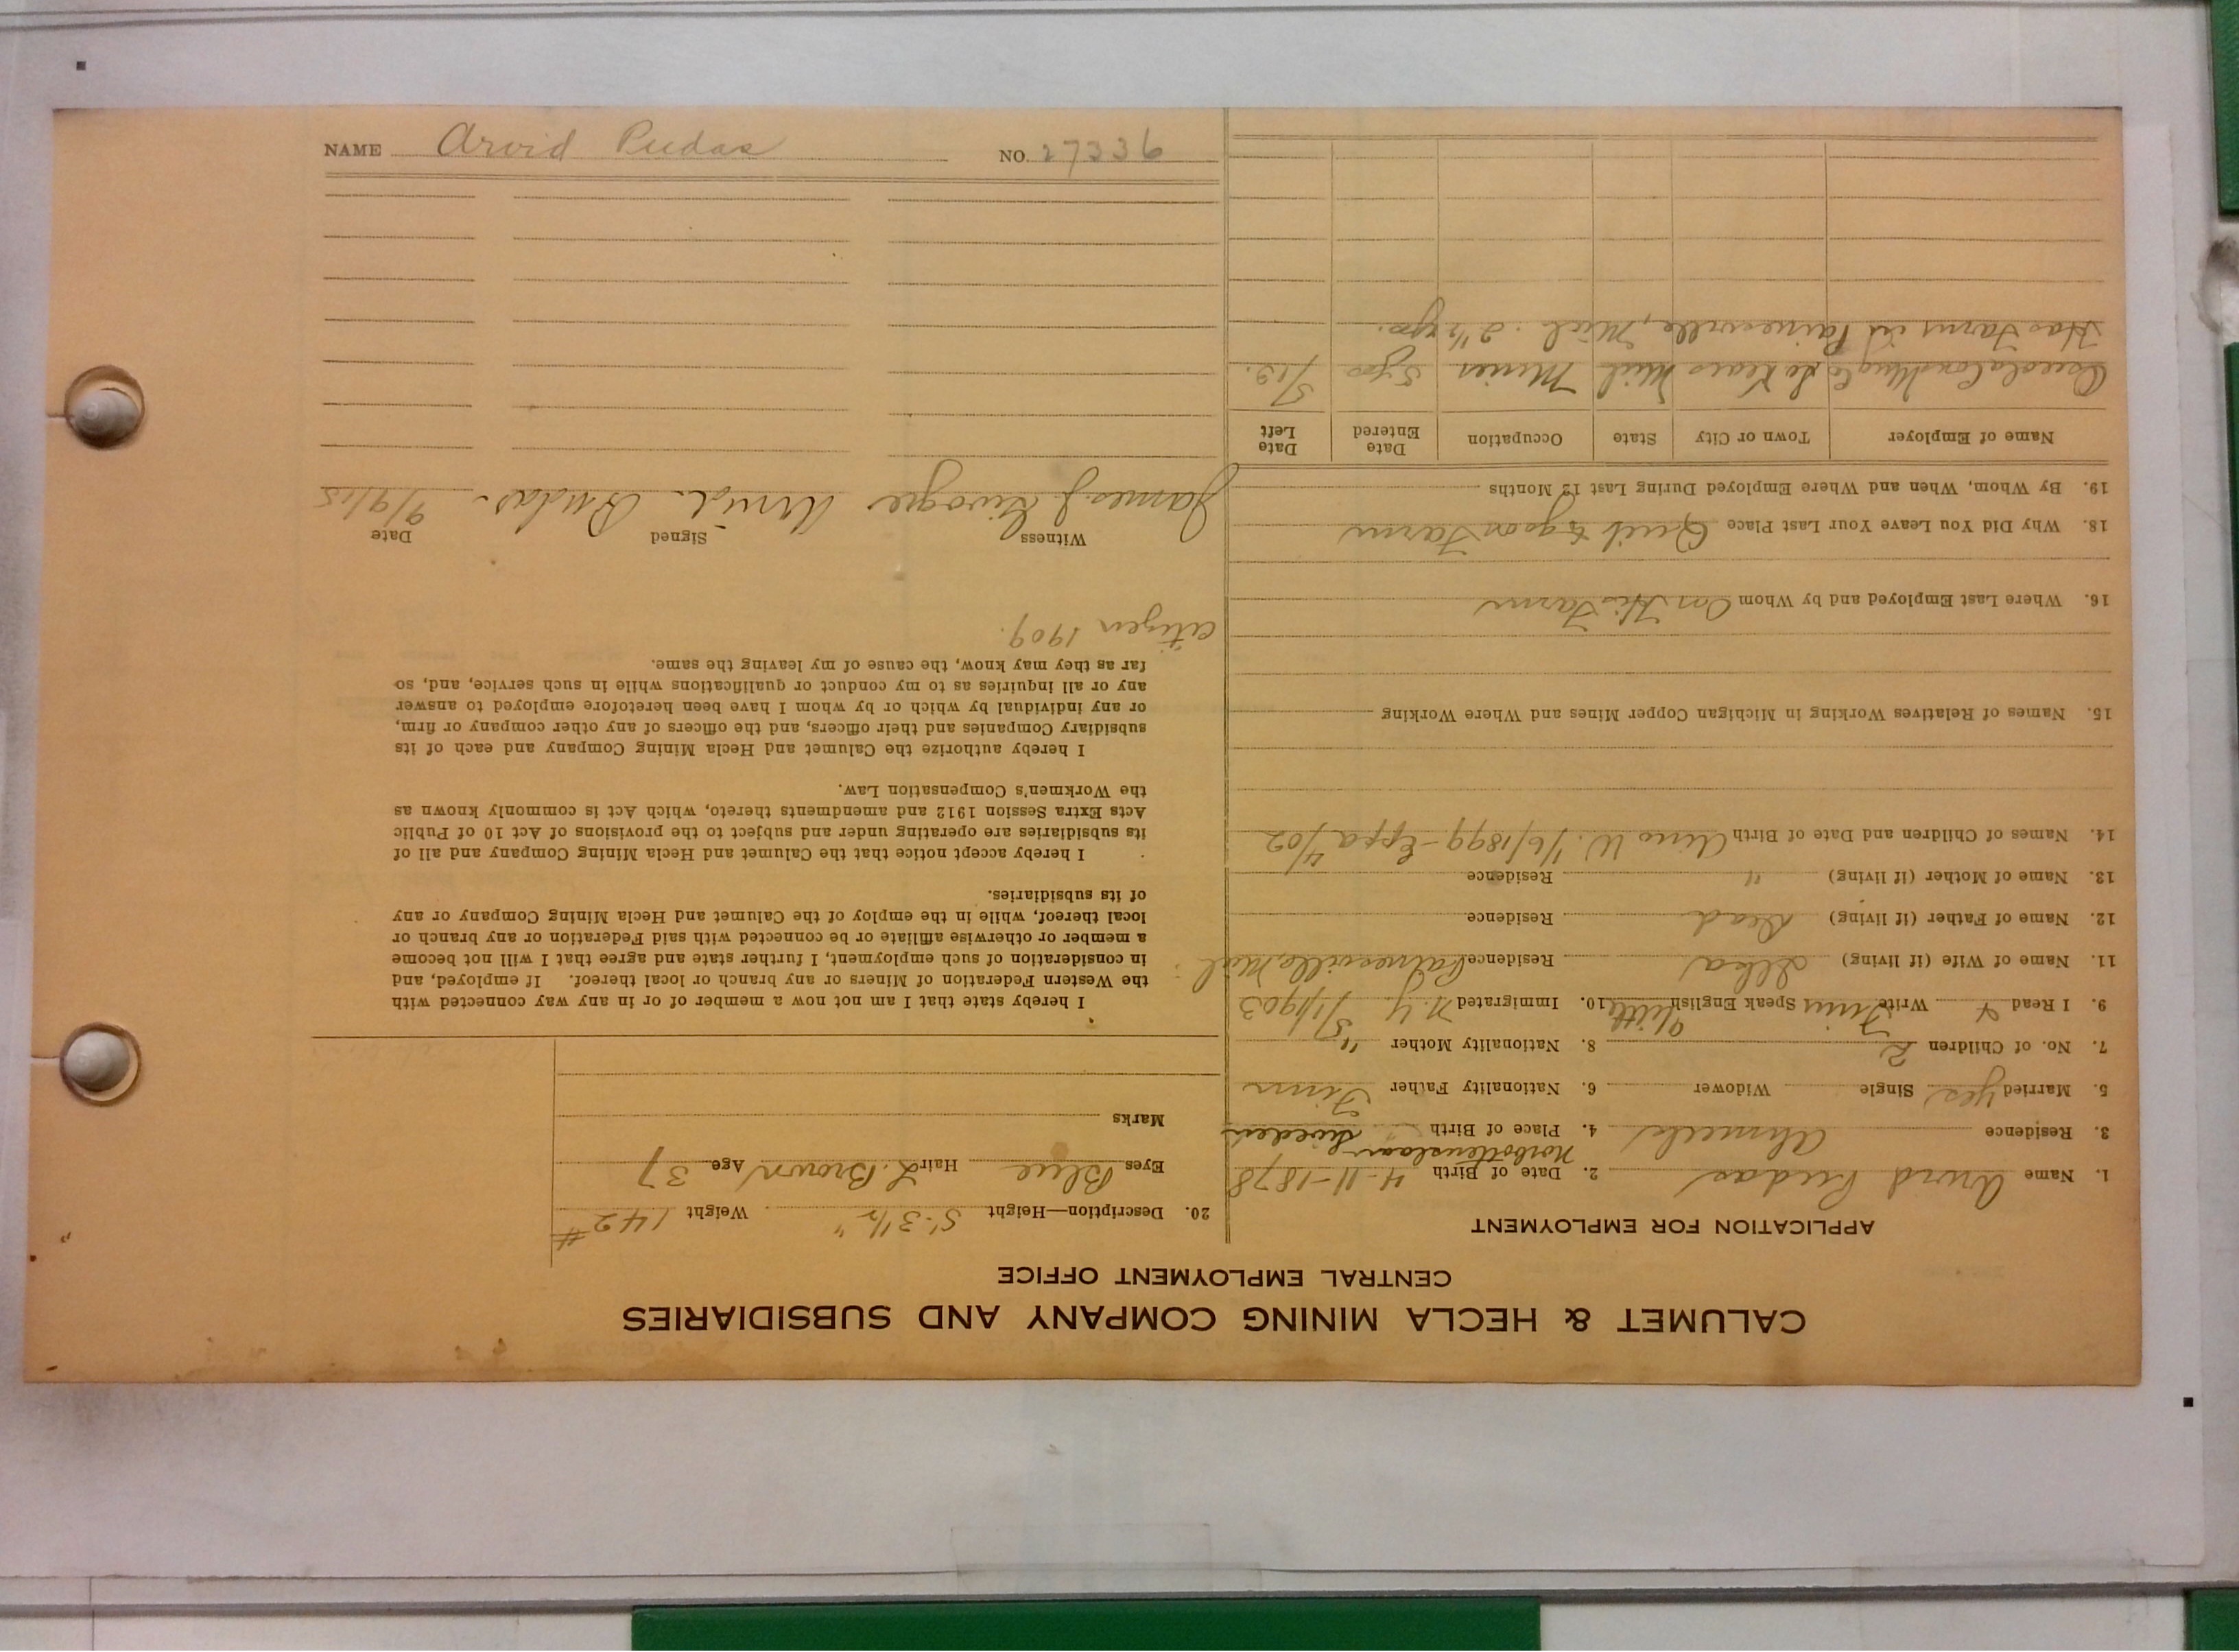 CALUMET & HECLA MINING COMPANY AND SUBSIDIARIES
CENTRAL EMPLOYMENT OFFICE
APPLICATION FOR EMPLOYMENT
1. Name Arvid Rudas 2. Date of Birth 4-11-1878
3. Residence Ahmeek 4. Place of Birth Sweden
5. Married yes Single Widower 6. Nationality Father Finn
7. No. of Children 2 8. Nationality Mother "
9. I Read & Write Finn Speak English little 10. Immigrated N.Y. 5/1/1903
11. Name of Wife (if living) Residence Painesville Mich
12. Name of Father (if living) Dead Residence
13. Name of Mother (if living) " Residence
14. Names of Children and Date of Birth W. 1/6/1899 - 4/02
15. Names of Relatives Working in Michigan Copper Mines and Where Working
16. Where Last Employed and by Whom On His Farm
18. Why Did You Leave Your Last Place Quit to go on Farm
19. By Whom, When and Where Employed During Last 12 Months
Name of Employer Town or City State Occupation Date Entered Date Left
Osceola Con Mng Co Mich Miner 5 yrs 5/13.
Has Farm in Painesville, Mich. 2 1/2 yrs.
20. Description—Height 5'-3 1/2" Weight 142 #
Eyes Blue Hair L. Brown Age 37
Marks
I hereby state that I am not now a member of or in any way connected with
the Western Federation of Miners or any branch or local thereof. If employed, and
in consideration of such employment, I further state and agree that I will not become
a member or otherwise affiliate or be connected with said Federation or any branch or
local thereof, while in the employ of the Calumet and Hecla Mining Company or any
of its subsidiaries.
I hereby accept notice that the Calumet and Hecla Mining Company and all of
its subsidiaries are operating under and subject to the provisions of Act 10 of Public
Acts Extra Session 1912 and amendments thereto, which Act is commonly known as
the Workmen's Compensation Law.
I hereby authorize the Calumet and Hecla Mining Company and each of its
subsidiary Companies and their officers, and the officers of any other company or firm,
or any individual by which or by whom I have been heretofore employed to answer
any or all inquiries as to my conduct or qualifications while in such service, and, so
far as they may know, the cause of my leaving the same.
Citizen 1909.
Witness Signed Date
James J. Arvid Rudas. 9/9/15
NAME Arvid Rudas NO. 27336